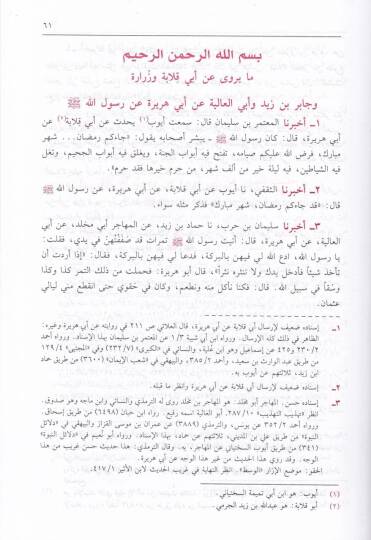 ٦١
بسم الله الرحمن الرحيم
ما يروى عن أبي قلابة وزُرارة
وجابر بن زيد وأبي العالية عن أبي هريرة عن رسول الله ﷺ
١ـ أخبرنا المعتمر بن سليمان قال: سمعت أيوب(١) يحدث عن أبي قِلابة(٢) عن
أبي هريرة، قال: كان رسول الله ﷺ ـ يبشر أصحابه يقول: «جاءكم رمضان... شهر
مبارك، فرض الله عليكم صيامه، تفتح فيه أبواب الجنة، ويغلق فيه أبواب الجحيم، وتغل
فيه الشياطين، فيه ليلة خير من ألف شهر، من حرم خيرها فقد حرم».
٢ـ أخبرنا الثقفي، نا أيوب عن أبي قلابة، عن أبي هريرة، عن رسول الله ﷺ
قال: «قد جاءكم رمضان، شهر مبارك» فذكر مثله سواء.
٣ـ أخبرنا سليمان بن حرب، نا حماد بن زيد، عن المهاجر أبي مخلد، عن أبي
العالية، عن أبي هريرة، قال: أتيت رسول الله ﷺ تمرات قد صَفَفْتُهنّ في يدي، فقلت:
يا رسول الله، ادع الله لي فيهن بالبركة، فدعا لي فيهن بالبركة، فقال: «إذا أردت أن
تأخذ شيئاً فأدخل يدك ولا تنثره نثراً»، قال أبو هريرة: فحملت من ذلك التمر كذا وكذا
وَسْقاً في سبيل الله. قال: فكنا نأكل منه ونطعم، وكان في حقوي حتى انقطع مني ليالي
عثمان.
١ـ إسناده ضعيف لإرسال أبي قلابة عن أبي هريرة، قال العلائي ص ٢١١ في روايته عن أبي هريرة وغيره،
الظاهر في ذلك كله الإرسال. ورواه ابن أبي شيبة ١/٣ عن المعتمر بن سليمان بهذا الإسناد. ورواه أحمد
٢٣٠/٢ و٤٢٥ عن إسماعيل وهو ابن عُلية، والنسائي في «الكبرى» و«المجتبى» ١٢٩/٤
من طريق عبد الوارث بن سعيد، وأحمد ٣٨٥/٢، والبيهقي في «شعب الإيمان» (٣٦٠٠) من طريق حماد
ابن زيد، ثلاثتهم عن أيوب به.
٢ـ إسناده ضعيف لإرسال أبي قلابة عن أبي هريرة وانظر ما قبله.
٣ـ إسناده حسن. المهاجر أبو مخلد: هو المهاجر بن مخلد روى له الترمذي والنسائي وابن ماجه وهو صدوق.
انظر «تهذيب التهذيب» ٢٨٧/١٠. أبو العالية اسمه رفيع. رواه ابن حبان (٦٤٩٨) من طريق إسحاق.
ورواه أحمد ٣٥٢/٢ عن يونس، والترمذي (٣٨٨٩) عن عمران بن موسى القزاز والبيهقي في «دلائل
النبوة» من طريق علي بن المديني، ثلاثتهم عن حماد، بهذا الإسناد. ورواه أبو نُعيم في «دلائل النبوة»
(٣٤١) من طريق أيوب السختياني عن المهاجر، به. وقال الترمذي: هذا حديث حسن غريب من هذا
الوجه. وقد روي هذا الحديث من غير هذا الوجه عن أبي هريرة.
الحقو: موضع الإزار «الوسط». انظر النهاية في غريب الحديث لابن الأثير ٤١٧/١.
(١) أيوب: هو ابن أبي تميمة السختياني.
(٢) أبو قلابة: هو عبدالله بن زيد الجرمي.